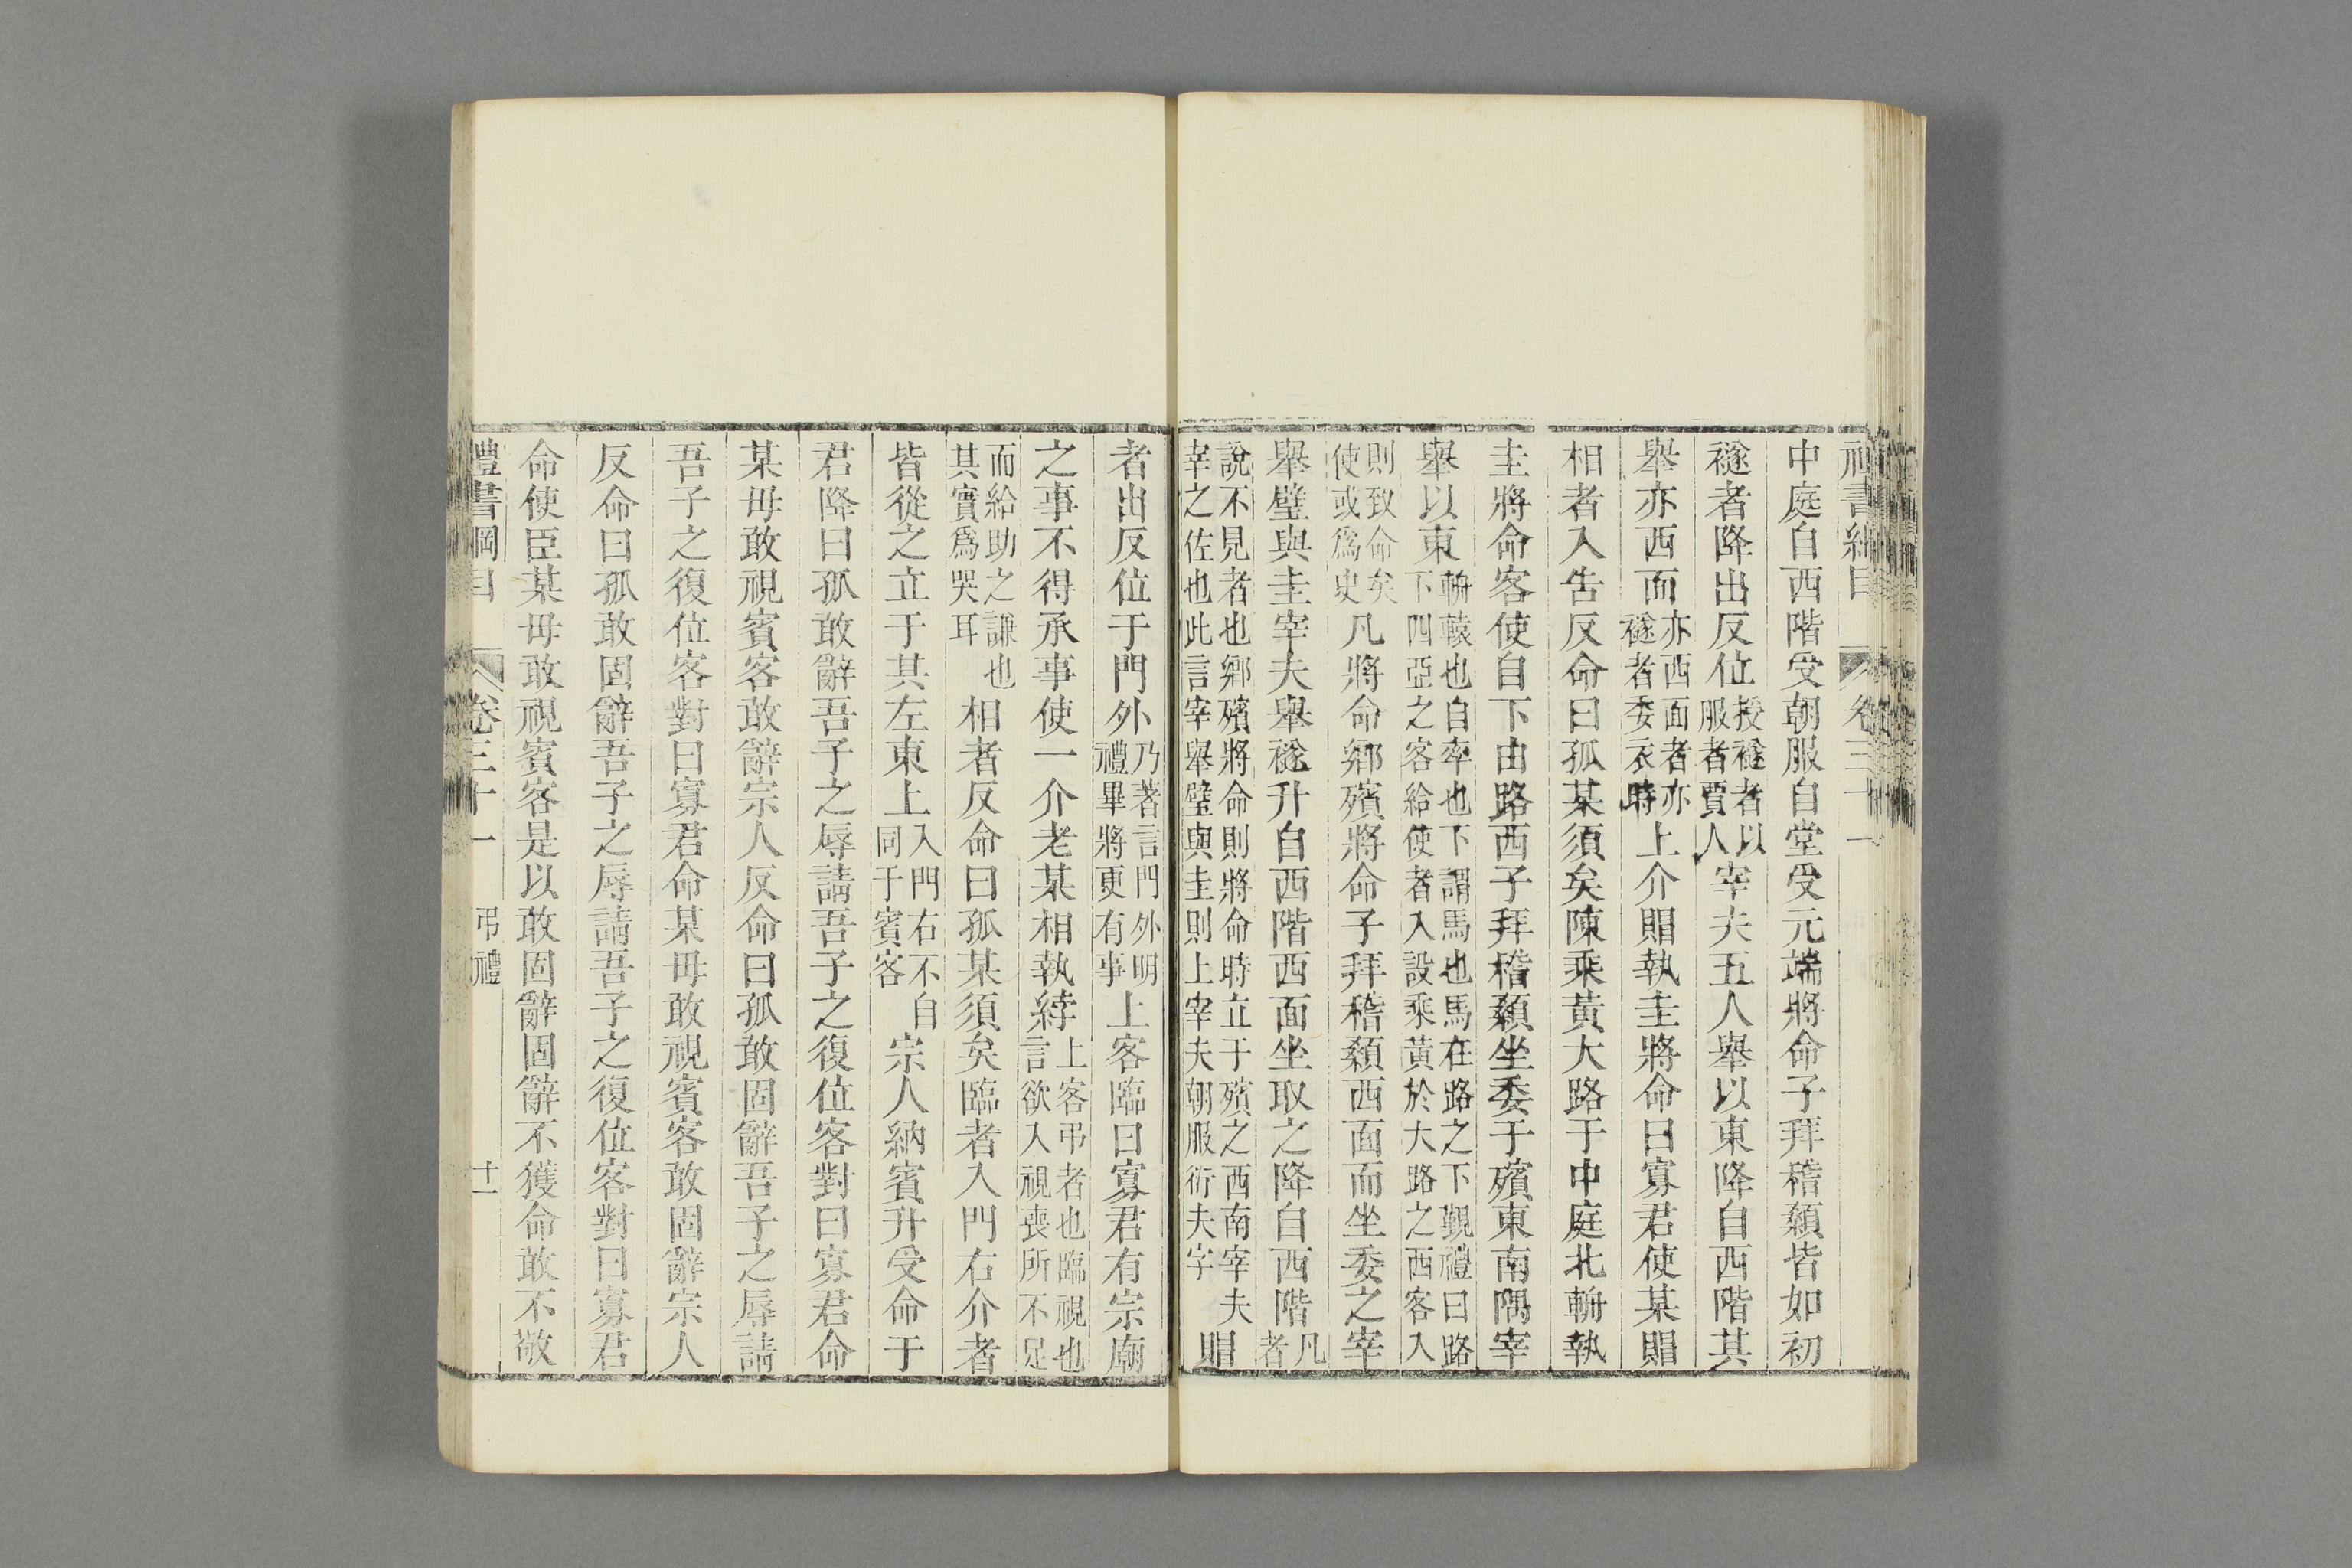 中庭自西階受朝服自堂受元端將命子拜稽顙皆如初
襚者降出反位授襚者以服者賈人宰夫五人舉以東降自西階其
舉亦西面亦西面者亦襚者委衣時上介賵執圭將命曰寡君使某賵
相者入告反命曰孤某須矣陳乘黃大路于中庭北輈執
圭將命客使自下由路西子拜稽顙坐委于殯東南隅宰
舉以東輈轅也自率也下謂馬也馬在路之下覲禮曰路下四亞之客給使者入設乘黃於大路之西客入
則致命矣使或爲史凡將命鄉殯將命子拜稽顙西面而坐委之宰
舉璧與圭宰夫舉襚升自西階西面坐取之降自西階凡者
說不見者也鄉殯將命則將命時立于殯之西南宰夫宰之佐也此言宰舉璧與圭則上宰夫朝服衍夫字賵
者出反位于門外乃著言門外明禮畢將更有事上客臨曰寡君有宗廟
之事不得承事使一介老某相執綍上客弔者也臨視也言欲入視喪所不足
而給助之謙也其實爲哭耳相者反命曰孤某須矣臨者入門右介者
皆從之立于其左東上入門右不自同于賓客宗人納賓升受命于
君降曰孤敢辭吾子之辱請吾子之復位客對曰寡君命
某毋敢視賓客敢辭宗人反命曰孤敢固辭吾子之辱請
吾子之復位客對曰寡君命某毋敢視賓客敢固辭宗人
反命曰孤敢固辭吾子之辱請吾子之復位客對曰寡君
命使臣某毋敢視賓客是以敢固辭固辭不獲命敢不敬
禮書綱目 卷三十一 弔禮 十一